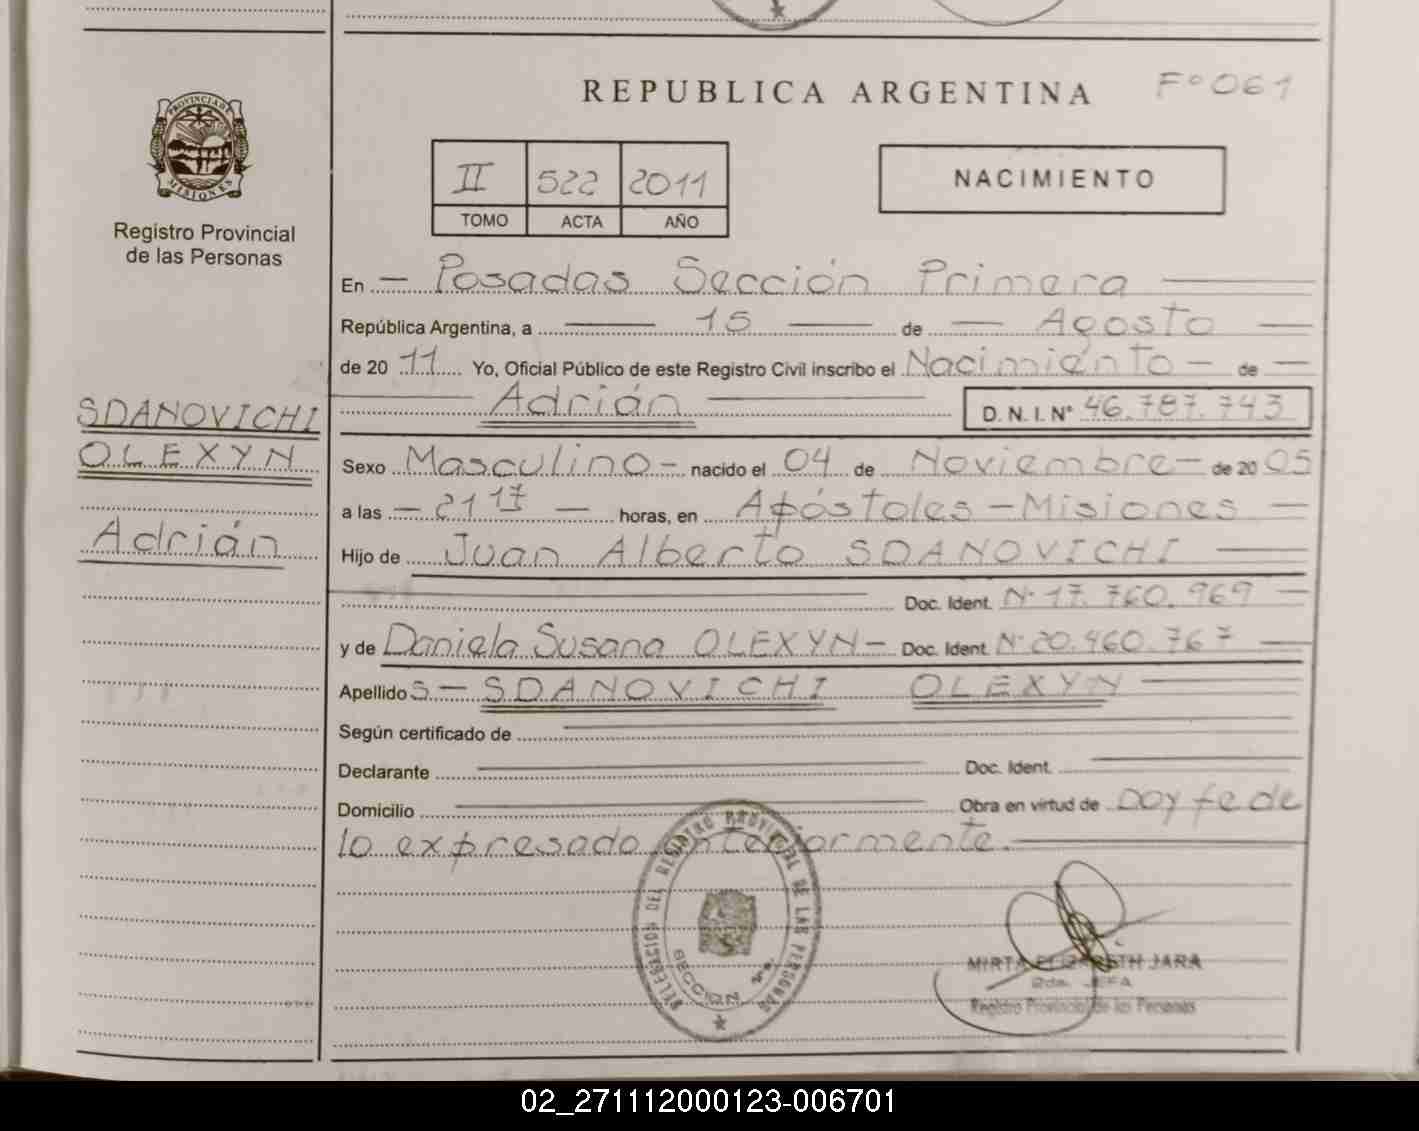 REPUBLICA ARGENTINA
Fº 061
PROVINCIA DE MISIONES
Registro Provincial
de las Personas
II 522 2011
TOMO ACTA AÑO
NACIMIENTO
En — Posadas Sección Primera
República Argentina, a — 15 — de — Agosto —
de 20 11 Yo, Oficial Público de este Registro Civil inscribo el Nacimiento — de —
Adrián D.N.I. Nº 46.787.743
SDANOVICHI
OLEXYN
Adrián
Sexo Masculino — nacido el 04 de Noviembre — de 20 05
a las — 21 17 — horas, en Apóstoles — Misiones —
Hijo de Juan Alberto SDANOVICHI
Doc. Ident. Nº 17.760.969 —
y de Daniela Susana OLEXYN — Doc. Ident. Nº 20.460.767 —
Apellido s — SDANOVICHI OLEXYN
Según certificado de
Declarante Doc. Ident.
Domicilio Obra en virtud de Doy fe de
lo expresado anteriormente.
DELEGACION DEL REGISTRO PROVINCIAL DE LAS PERSONAS
SECCION 1ra.
MIRTA ELIZABETH JARA
2da. JEFA
Registro Provincial de las Personas
02_271112000123-006701